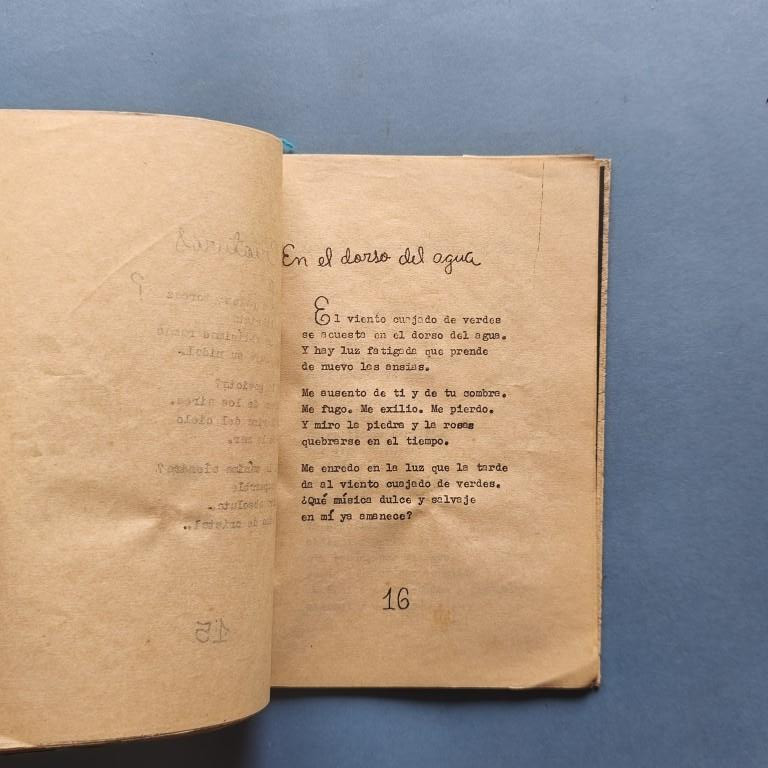 En el dorso del agua
El viento cuajado de verdes
se acuesta en el dorso del agua.
Y hay luz fatigada que prende
de nuevo las ansias.
Me ausento de ti y de tu sombra.
Me fugo. Me exilio. Me pierdo.
Y miro la piedra y la rosas
quebrarse en el tiempo.
Me enredo en la luz que la tarde
da al viento cuajado de verdes.
¿Qué música dulce y salvaje
en mí ya amanece?
16
15